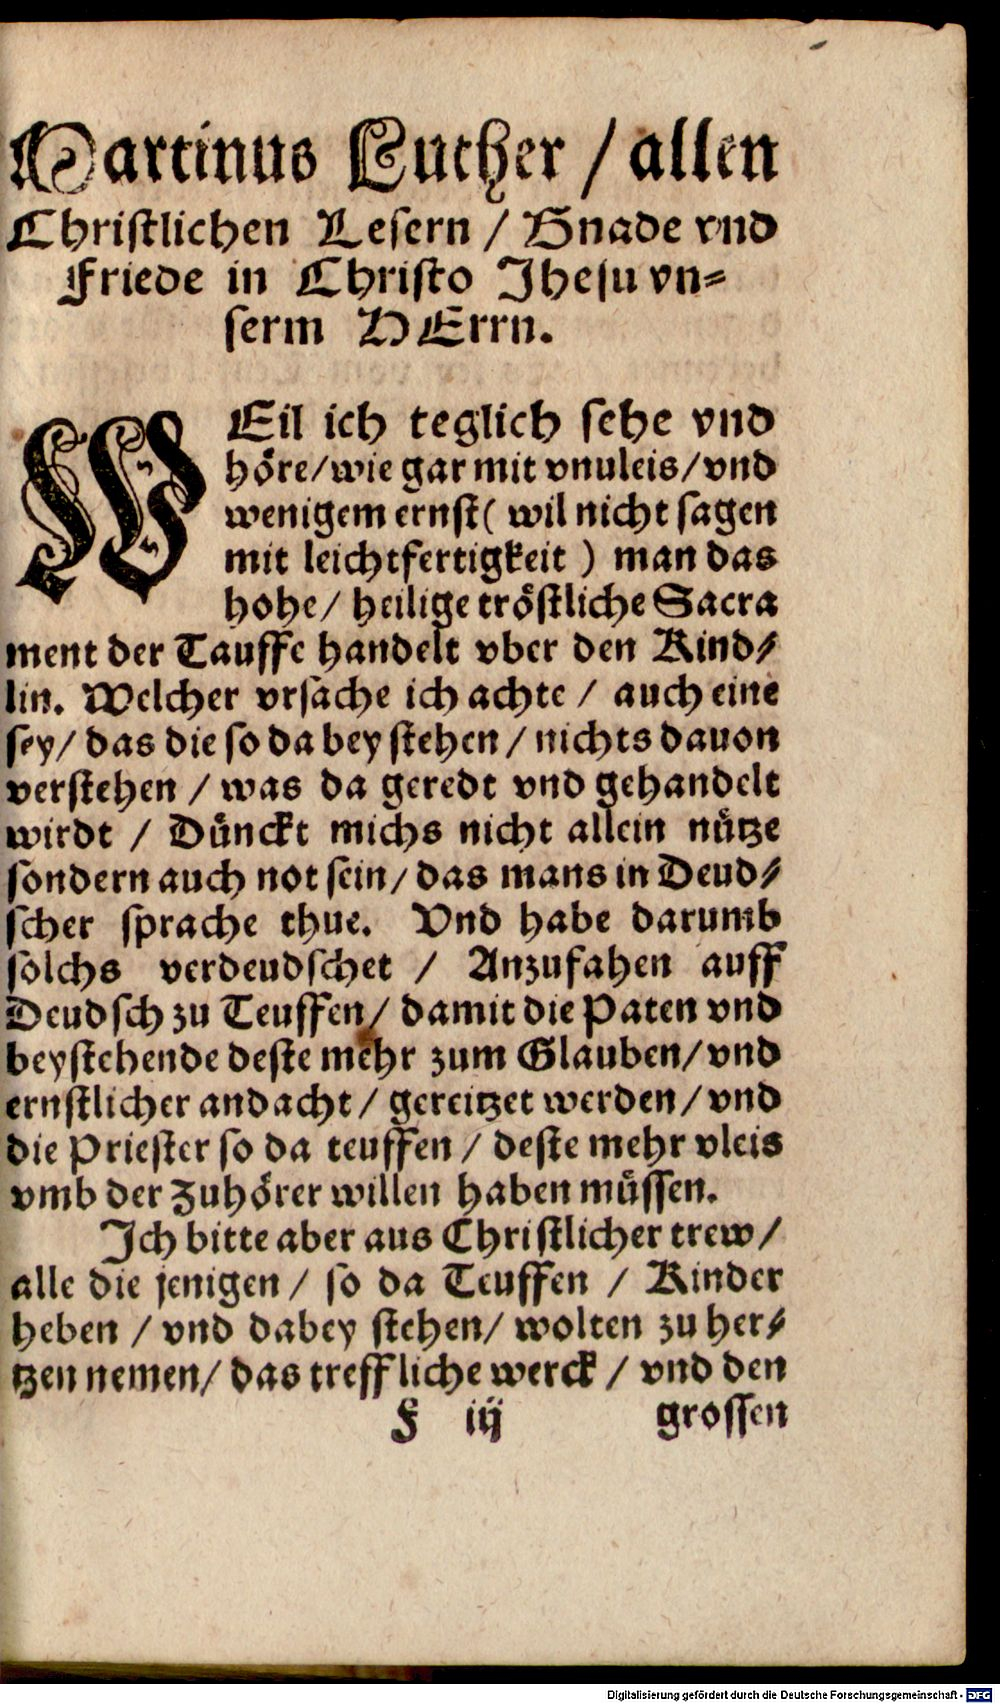 Martinus Luther / allen
Christlichen Lesern / Gnade vnd
Friede in Christo Jhesu vn⸗
serm HErrn.
WEil ich teglich sehe vnd
höre / wie gar mit vnuleis / vnd
wenigem ernst ( wil nicht sagen
mit leichtfertigkeit ) man das
hohe / heilige tröstliche Sacra
ment der Tauffe handelt vber den Kind⸗
lin. Welcher vrsache ich achte / auch eine
sey / das die so da bey stehen / nichts dauon
verstehen / was da geredt vnd gehandelt
wirdt / Dünckt michs nicht allein nütze
sondern auch not sein / das mans in Deud⸗
scher sprache thue. Vnd habe darumb
solchs verdeudschet / Anzufahen auff
Deudsch zu Teuffen / damit die Paten vnd
beystehende deste mehr zum Glauben / vnd
ernstlicher andacht / gereitzet werden / vnd
die Priester so da teuffen / deste mehr vleis
vmb der Zuhörer willen haben müssen.
Ich bitte aber aus Christlicher trew /
alle die jenigen / so da Teuffen / Kinder
heben / vnd dabey stehen / wolten zu her⸗
tzen nemen / das treffliche werck / vnd den
F iij grossen
Digitalisierung gefördert durch die Deutsche Forschungsgemeinschaft - DFG